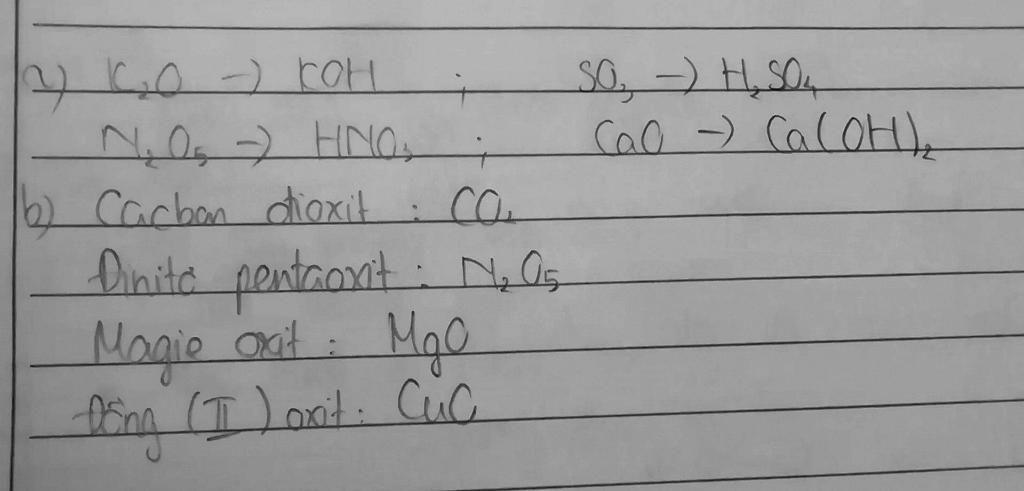 a) K₂O → KOH ; SO₃ → H₂SO₄
N₂O₅ → HNO₃ ; CaO → Ca(OH)₂
b) Cacban đioxit : CO₂
Đinitơ pentaoxit : N₂O₅
Magie oxit : MgO
Đồng (II) oxit : CuO